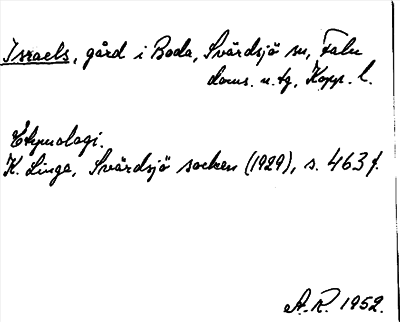 Israels, gård i Boda, Svärdsjö sn, Falu
doms. n. tg, Kopp. l.
Etymologi.
K. Linge, Svärdsjö socken (1929), s. 463 f.
A. R. 1952.